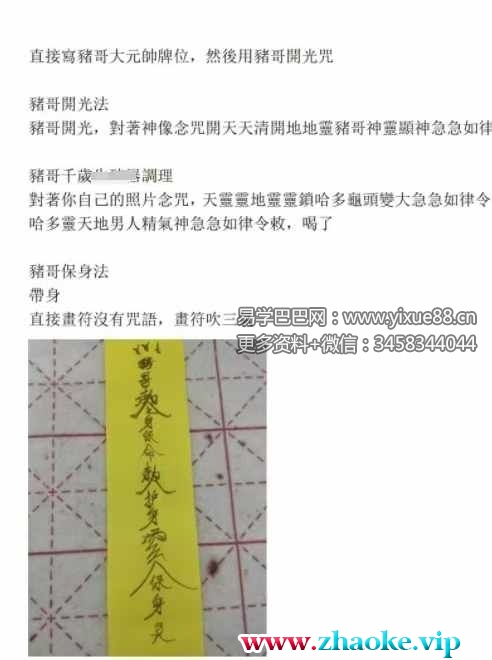 直接寫豬哥大元帥牌位，然後用豬哥開光咒
豬哥開光法
豬哥開光，對著神像念咒開天天清開地地靈豬哥神靈顯神急急如律
豬哥千歲 調理
對著你自己的照片念咒，天靈靈地靈靈鎖哈多龜頭變大急急如律令
哈多靈天地男人精氣神急急如律令敕，喝了
豬哥保身法
帶身
直接畫符沒有咒語，畫符吹三
易学巴巴网：www.yixue88.cn
更多资料+微信：3458344044
保身
www.zhaoke.vip